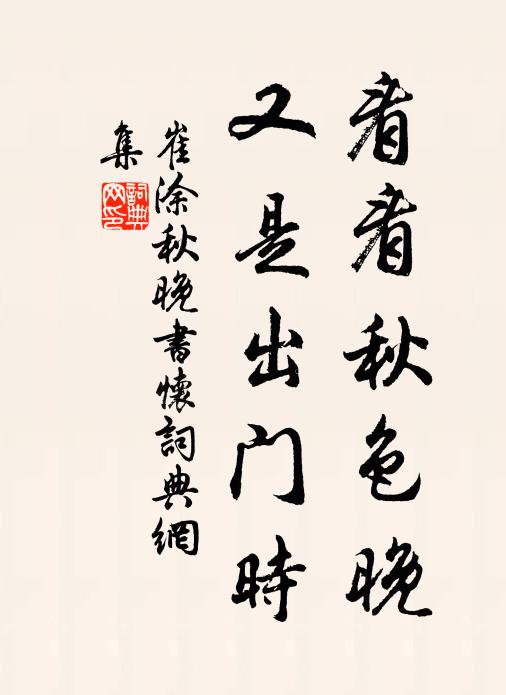 看看秋色晚
又是出门時
崔涂秋晚書懷詞典網
集
詞典网印